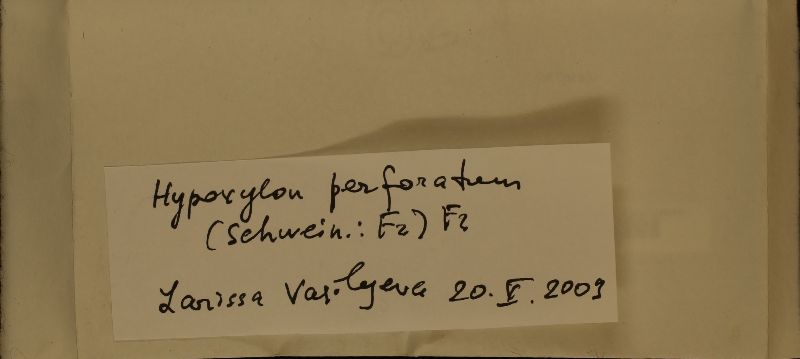 Hypoxylon perforatum
(Schwein.: Fr) Fr
Larissa Vasilyeva 20.V.2009